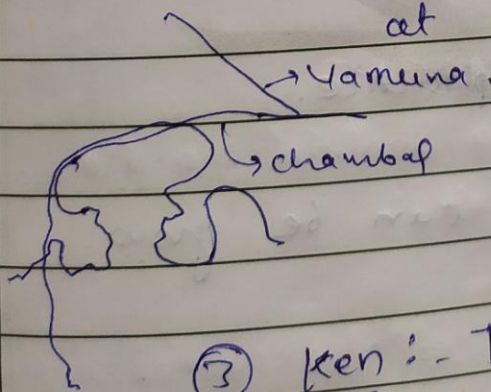 at
Yamuna.
chambal
③ Ken :-